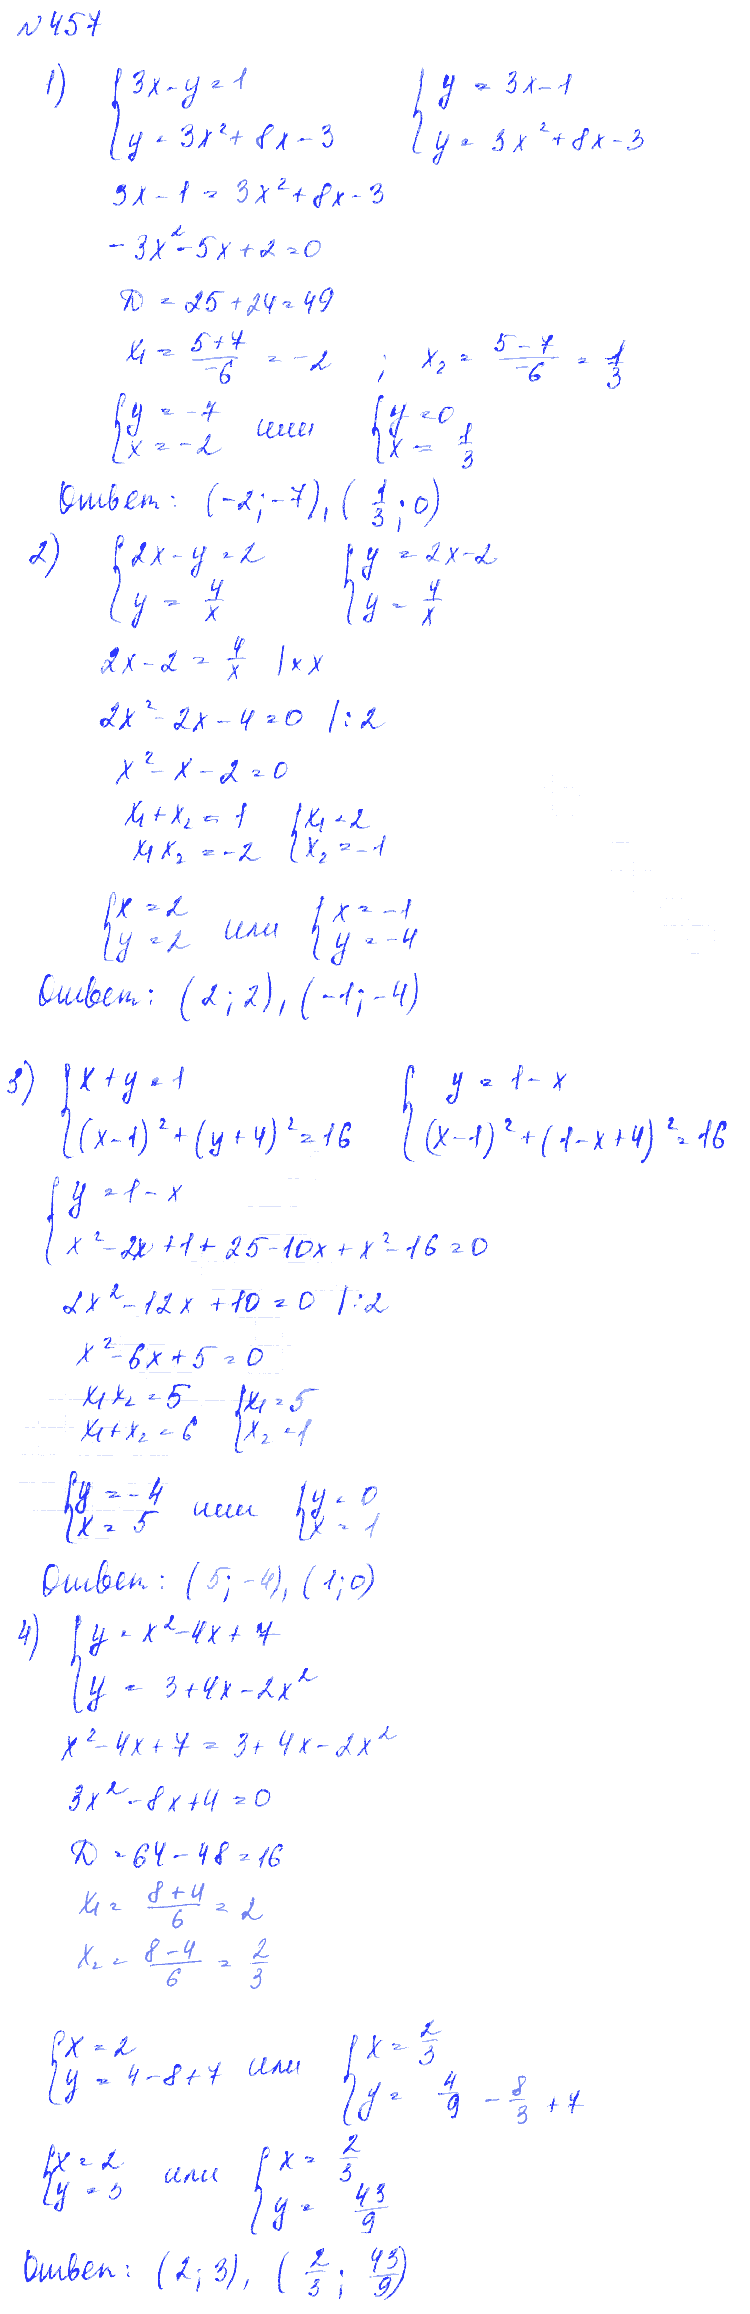 №457
1) { 3x-y=1 { y = 3x-1
{ y = 3x²+8x-3 { y = 3x²+8x-3
3x-1 = 3x²+8x-3
-3x²-5x+2=0
D = 25+24=49
x₁ = (5+7)/(-6) = -2 ; x₂ = (5-7)/(-6) = 1/3
{ y = -7 или { y = 0
{ x = -2 { x = 1/3
Ответ: (-2;-7), (1/3;0)
2) { 2x-y=2 { y = 2x-2
{ y = 4/x { y = 4/x
2x-2 = 4/x |×x
2x²-2x-4=0 |:2
x²-x-2=0
x₁+x₂ = 1 { x₁=2
x₁x₂ = -2 { x₂=-1
{ x = 2 или { x = -1
{ y = 2 { y = -4
Ответ: (2;2), (-1;-4)
3) { x+y=1 { y = 1-x
{ (x-1)²+(y+4)²=16 { (x-1)²+(1-x+4)²=16
{ y = 1-x
{ x²-2x+1+25-10x+x²-16=0
2x²-12x+10=0 |:2
x²-6x+5=0
x₁x₂=5 { x₁=5
x₁+x₂=6 { x₂=1
{ y=-4 или { y=0
{ x=5 { x=1
Ответ: (5;-4), (1;0)
4) { y = x²-4x+7
{ y = 3+4x-2x²
x²-4x+7 = 3+4x-2x²
3x²-8x+4=0
D = 64-48=16
x₁ = (8+4)/6 = 2
x₂ = (8-4)/6 = 2/3
{ x = 2 или { x = 2/3
{ y = 4-8+7 { y = 4/9 - 8/3 + 7
{ x = 2 или { x = 2/3
{ y = 3 { y = 43/9
Ответ: (2;3), (2/3; 43/9)